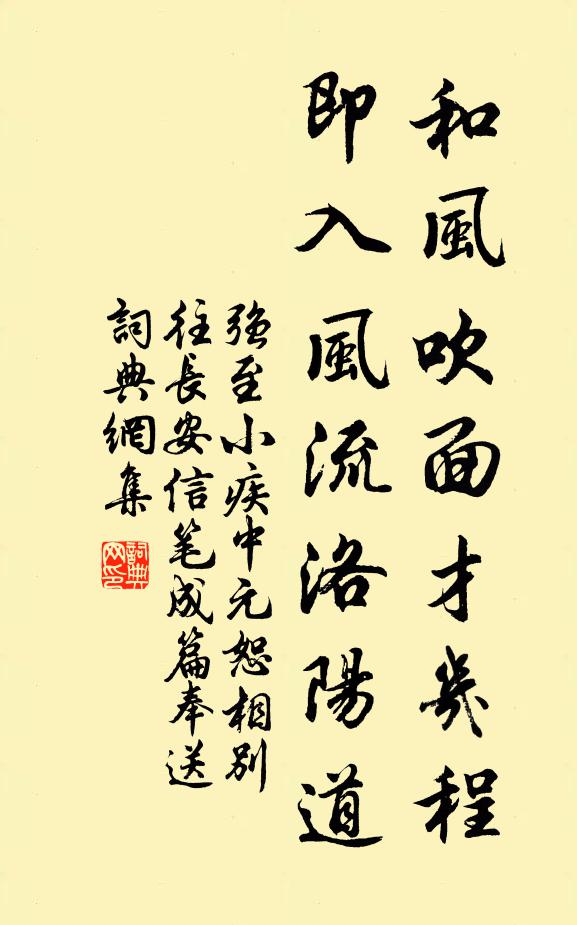 和風吹面才幾程
即入風流洛陽道
强至小疾中元恕相別
往長安信笔成篇奉送
詞典網集
詞典
网印